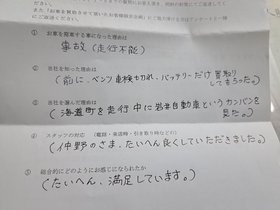 ① お車を廃車する事になった理由は
事故(走行不能)
② 当社を知った理由は
(前に、ベンツ車検切れ、バッテリーだけ買取り
してもらった。)
③ 当社を選んだ理由は
(海道町を走行中に岩手自動車というカンバンを
見た。)
④ スタッフの対応 (電話・来店時・引き取り時など)
(仲野のさま、たいへん良くしていただきました。)
⑤ 総合的にどのようにお感じになられたか
(たいへん、満足しています。)